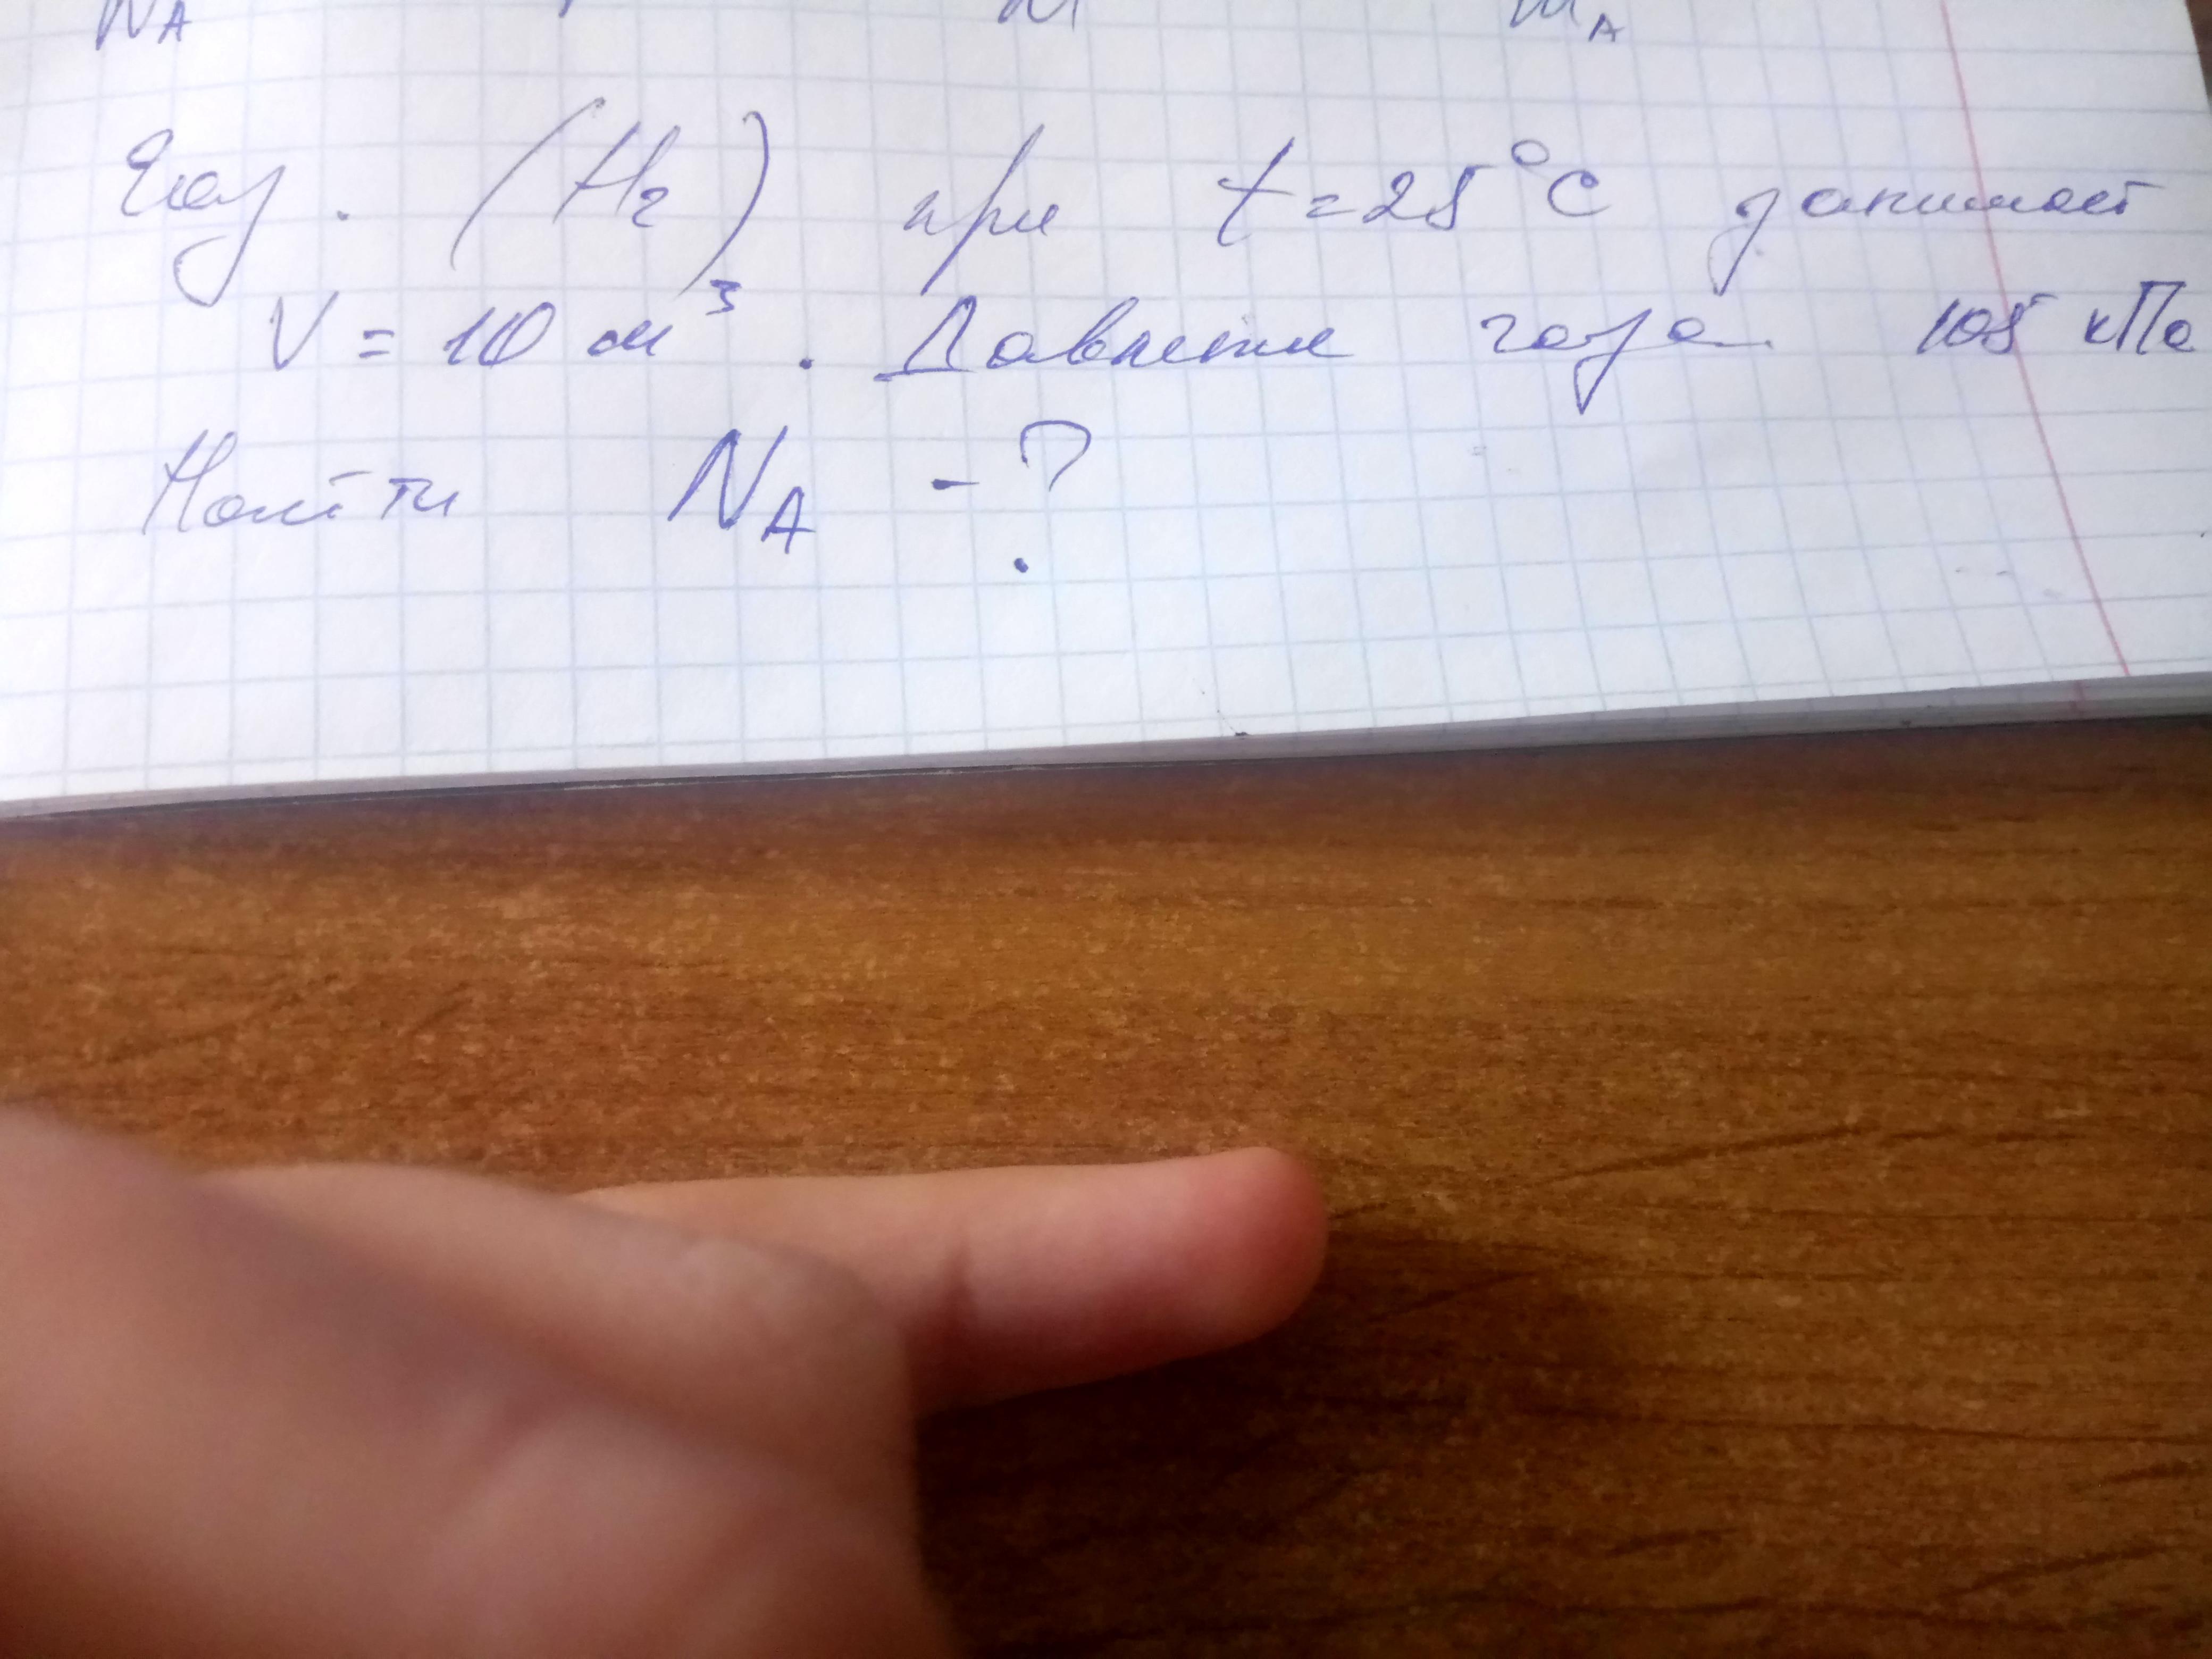 N_A m_A
Газ. (H₂) при t=25°C занимает
V = 10 м³. Давление газа 105 кПа
Найти N_A -?